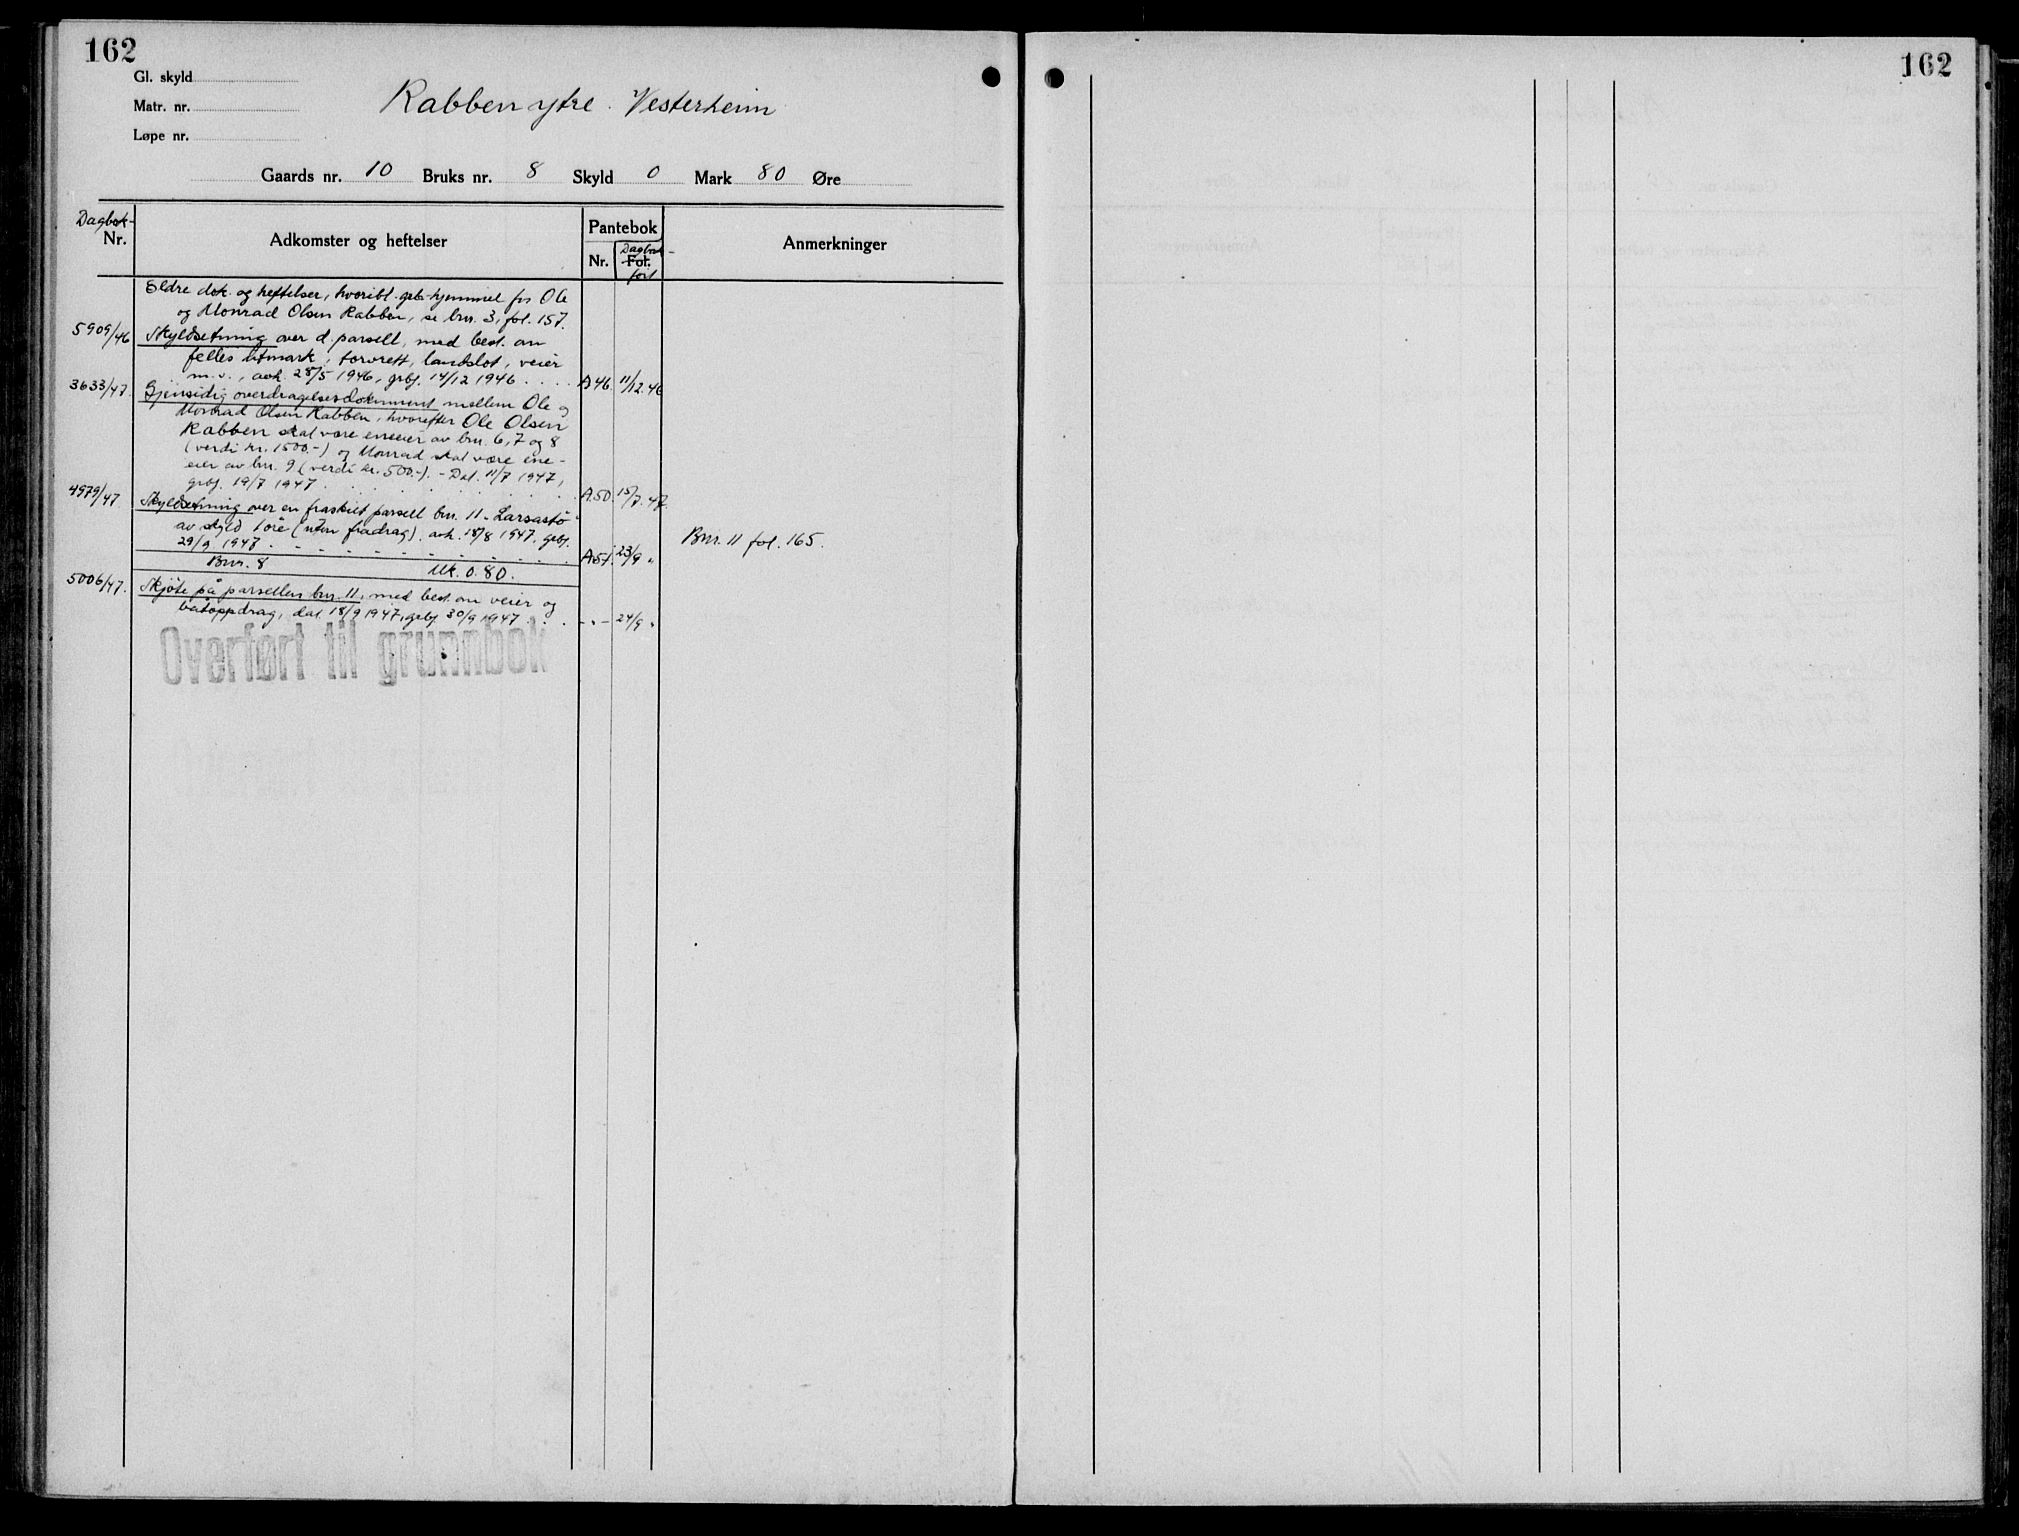 162
162
Gl. skyld
Matr. nr.
Løpe nr.
Rabben ytre. Vesterheim
Gaards nr. 10 Bruks nr. 8 Skyld 0 Mark 80 Øre
Dagbok-
Nr.
Adkomster og heftelser
Pantebok
Nr.
Dagbok-
Fol.
ført
Anmerkninger
Eldre dok. og heftelser, hvoribl. grb-hjemmel for Ole
og Monrad Olsen Rabben, se bnr. 3, fol. 157.
5909/46 Skyldsetning over d. parsell, med best. om
felles utmark, torvrett, landslot, veier
m.v., avh. 28/5 1946, grbf. 14/12 1946 . . . . A 46. 11/12.46
3633/47. Gjensidig overdragelsesdokument mellem Ole og
Monrad Olsen Rabben, hvorefter Ole Olsen
Rabben skal være eneeier av bnr. 6, 7 og 8
(verdi kr. 1500.-) og Monrad skal være ene-
eier av bnr. 9 (verdi kr. 500.-). - Dat. 11/7 1947,
grbf. 19/7 1947 . . . . . . . . A.50. 15/7.47
4979/47 Skyldsetning over en fraskilt parsell bnr. 11 "Larsastø"
av skyld 1 øre (uten fradrag). avh. 18/8 1947. grbf.
29/9 1947. . . . . . . . . . A.51. 23/9 "
Bnr. 11 fol. 165.
Bnr. 8 Mk. 0.80.
5006/47. Skjøte på parsellen bnr. 11, med best. om veier og
båtoppdrag, dat. 18/9 1947, grbf. 30/9 1947 . . . - " - 24/9 "
Overført til grunnbok